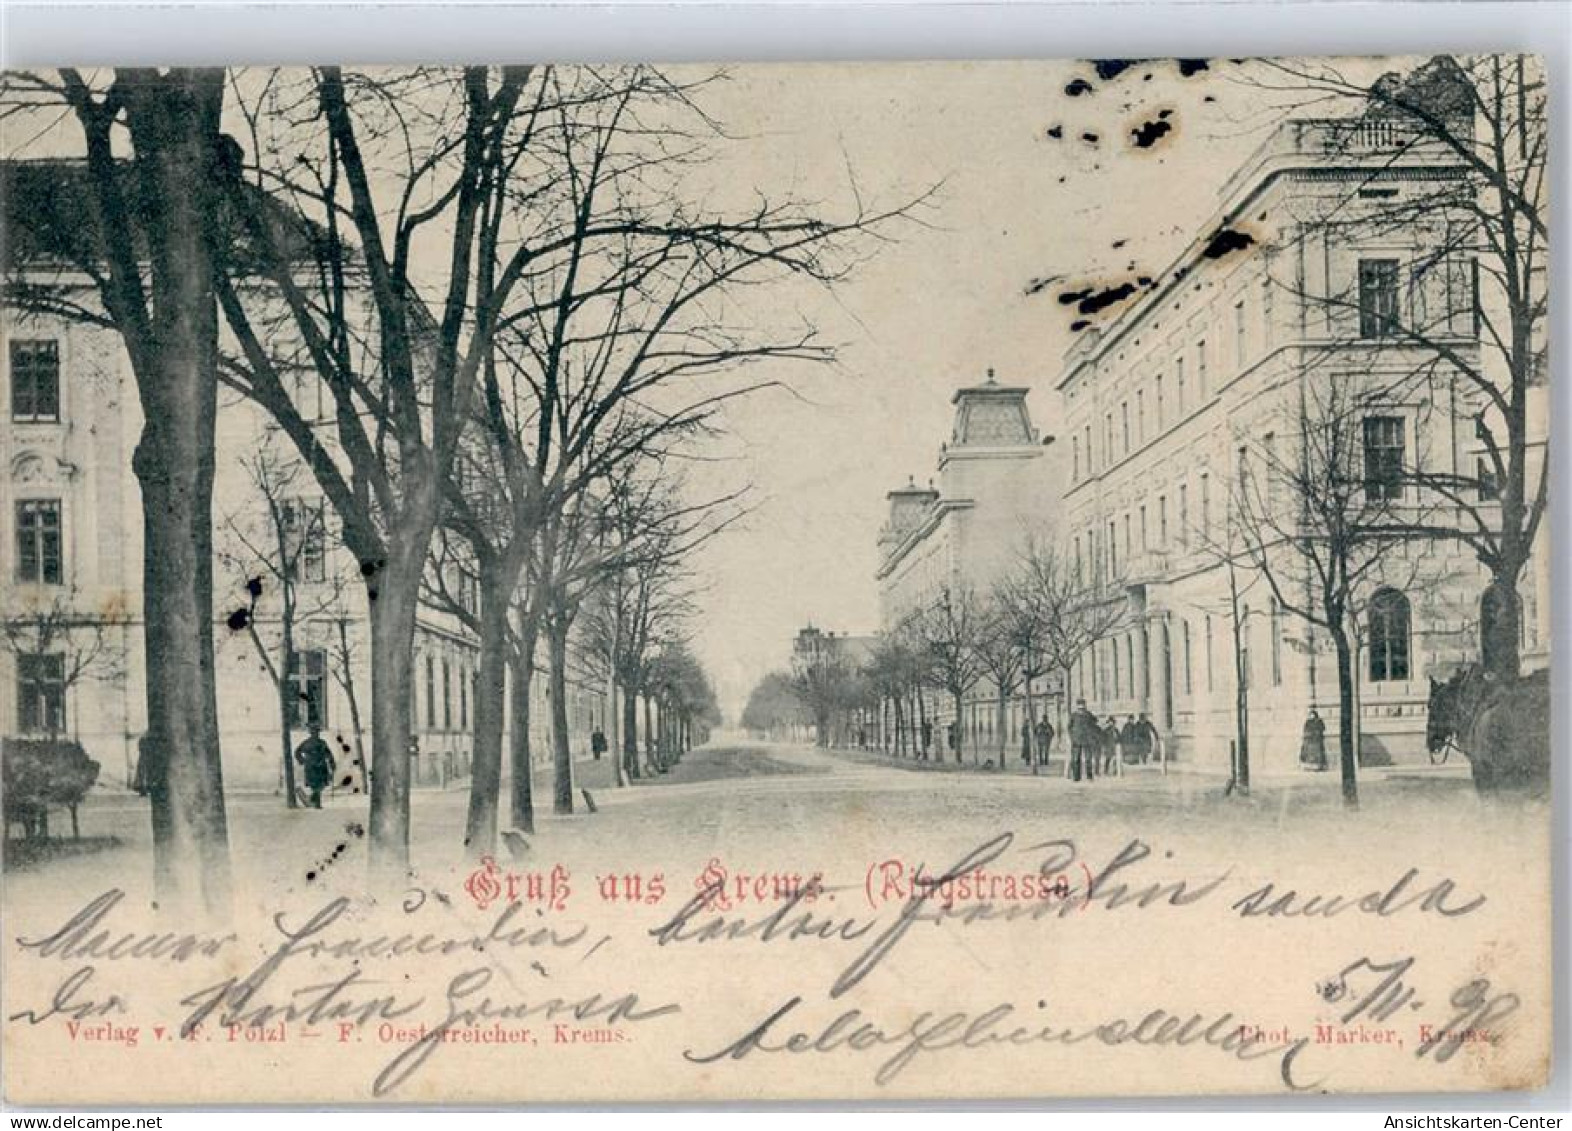 Gruß aus Krems. (Ringstrasse.)
Meiner Freundin, besten Freundin sende
der besten Grüsse 5/IV. 98
Adolf
Verlag v. F. Pölzl — F. Oesterreicher, Krems.
Phot. Marker, Krems.
Ansichtskarten-Center